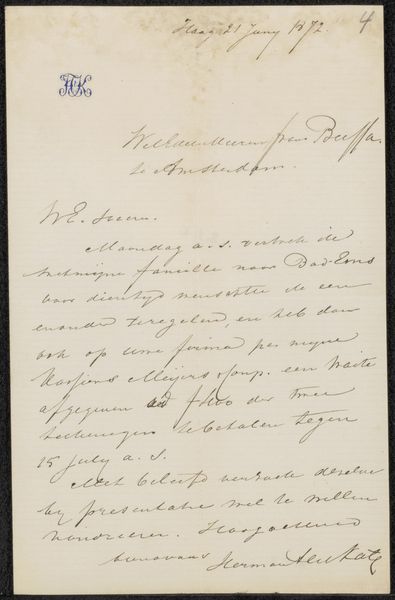 4
Haag 21 Juny 1872.
HTK
WelEdele Heeren Buffa
te Amsterdam.
WE. Heeren.
Maandag a. s. vertrek ik
met mijne familie naar Bad-Ems
voor dien tyd wenschte ik een
en ander te regelen, en heb dan
ook op uwe firma per myne
Meijers & Comp. een traite
afgegeven ad der twee
te betalen tegen
15 July a. s.
Met beleefd verzoek dezelve
by presentatie wel te willen
honoreren. Hoogachtend
Herman ten Kate